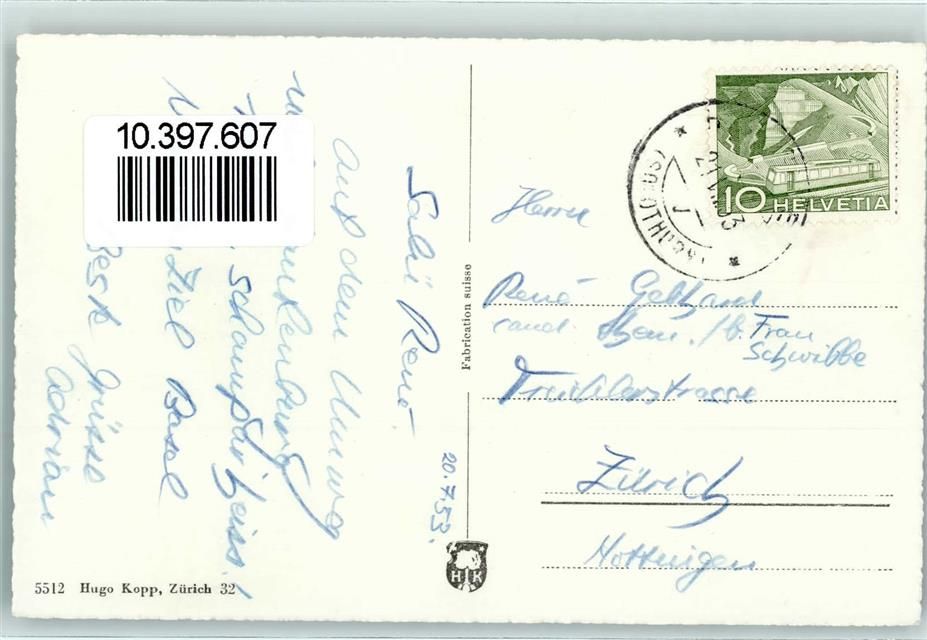 10.397.607
20.7.53.
Salü René.
Auf dem Umweg
schampar heiss!
Ziel Basel
Beste Grüsse
Adrian
Fabrication suisse
HK
5512 Hugo Kopp, Zürich 32
10 HELVETIA
Herrn
René Gebhard
cand. chem. / b. Frau
Schwilbe
Zürich
Hottingen